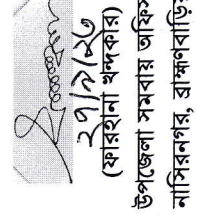 ২৭/৯/২৩
(ফারহানা খন্দকার)
উপজেলা সমবায় অফিস
নাসিরনগর, ব্রাহ্মণবাড়িয়